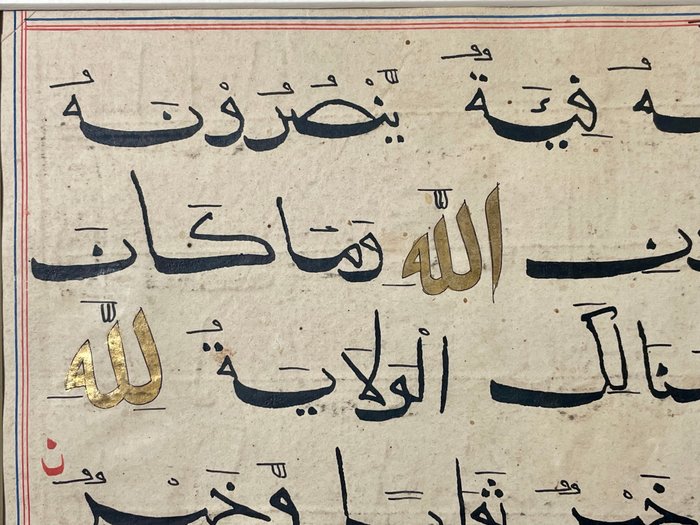 ـهُ فِئَةٌ يَّنْصُرُوْنَهُ
ـوْنِ اللّٰهِ وَمَا كَانَ
ـنَالِكَ الْوَلَايَةُ لِلّٰهِ
ن
خَيْرٌ ثَوَابًا وَّخَيْرٌ